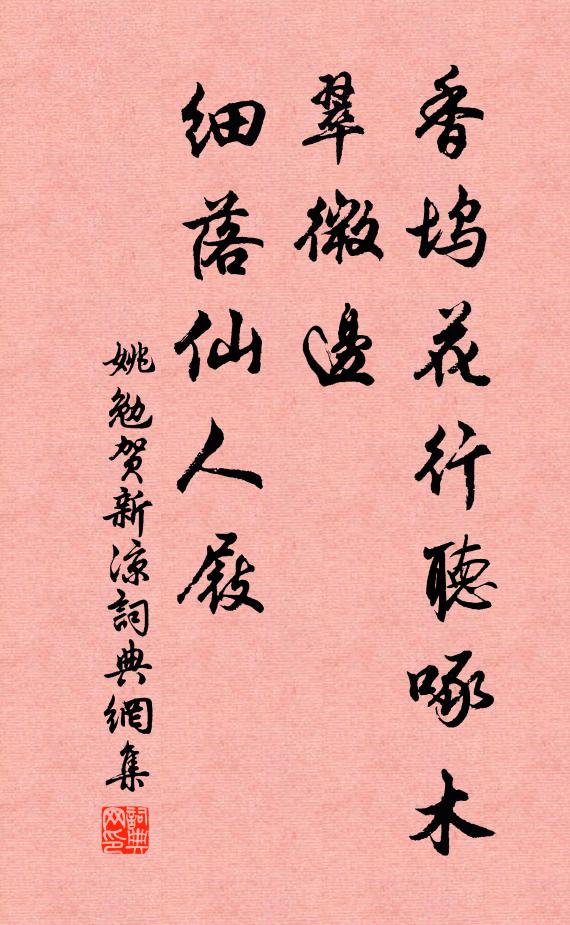 香坞花行聽啄木
翠微邊
细落仙人屐
姚勉贺新凉詞典網集
詞典网印